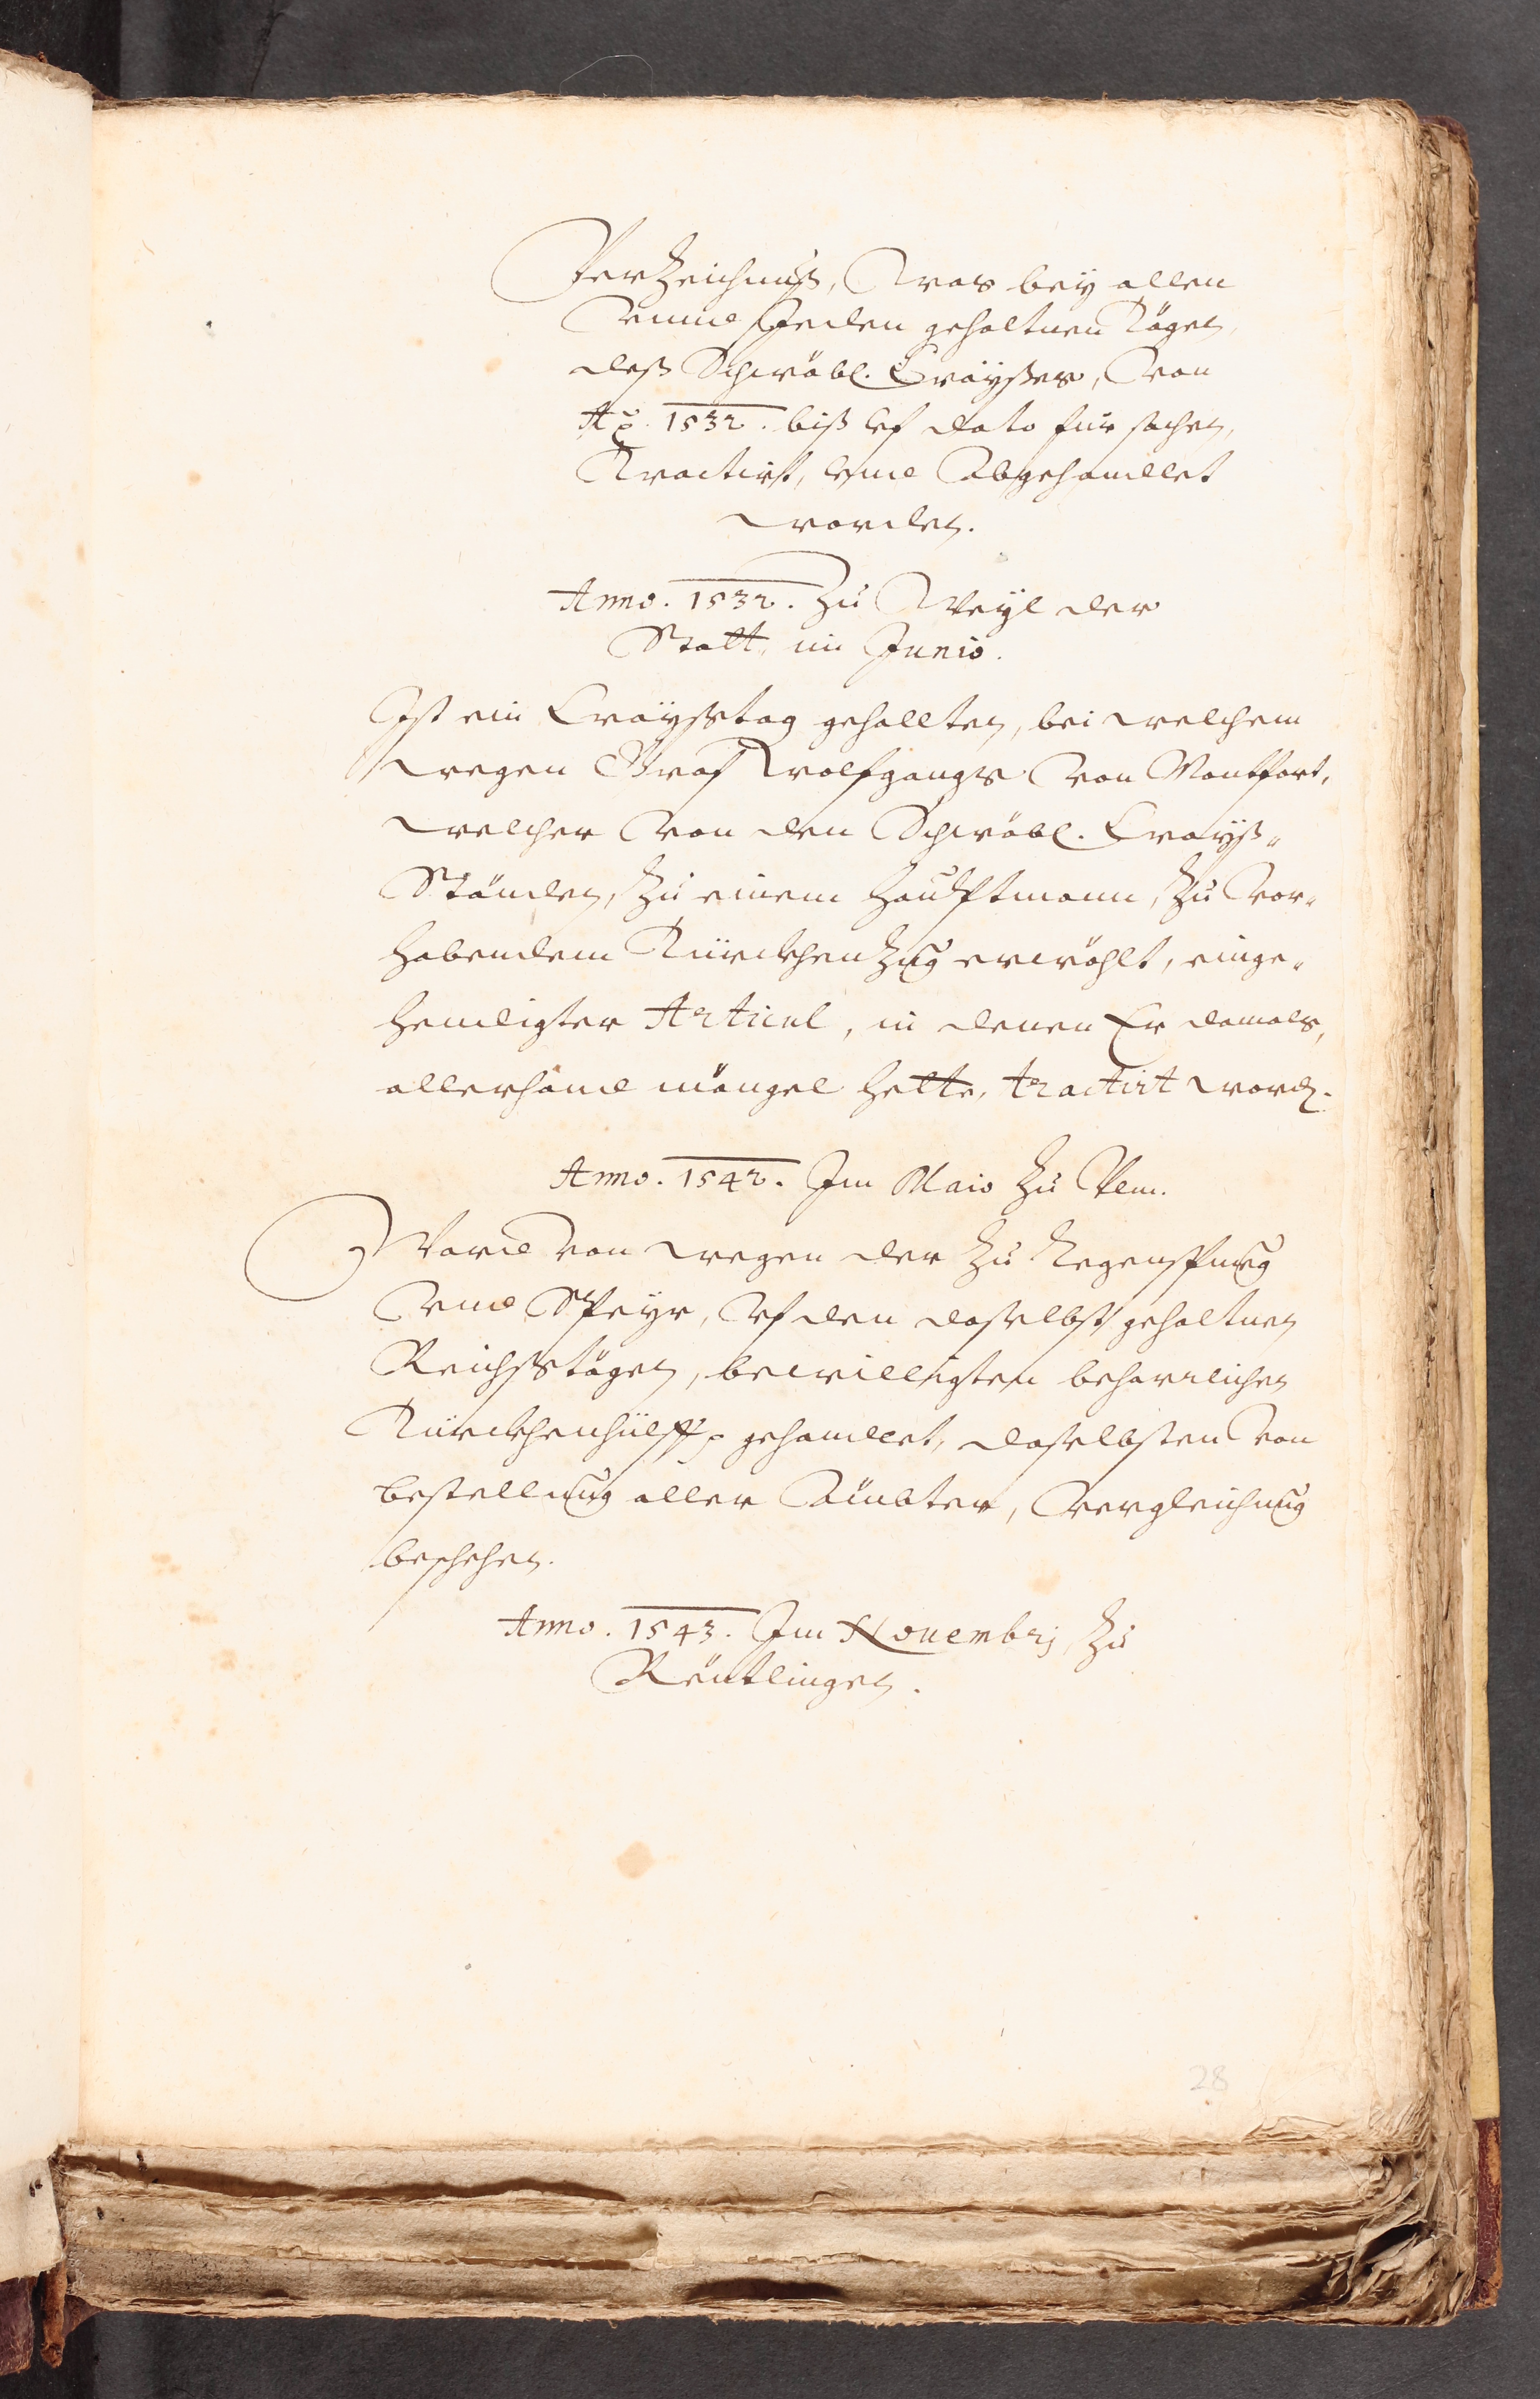 Verzeichnuß, Was bey allen
Vnnd Jeden gehaltnen Tägen,
deß Schwäbl. Crayßes, Von
Ao. 1532. biß vf dato für sachen,
Tractirt, vnd Abgehandlet
worden.
Anno. 1532. Zu Weyl der
Statt, im Junio.
Ist ein Crayßtag gehallten, bei welchem
wegen Graf Wolfgangs Von Montfort,
welcher Von den Schwäbl. Crayß-
Ständen, Zu einem Haubtmann, Zu Vor-
habendem Türckhen Zug erwöhlt, einge-
hendigter Articul, in denen Er damals,
allerhand mängel hette, tractirt word.
Anno. 1542. Im Maio Zu Vlm.
Ward von wegen der Zu Regenspurg
Vnd Speyr, Vf den daselbst gehaltnen
Reichstägen, bewilligten beharrlichen
Türckhenhülff gehandlet, daselbsten Von
bestellung aller Ämbter, Vergleichung
beschehen.
Anno. 1543. Im Nouembrj Zu
Reütlingen.
28